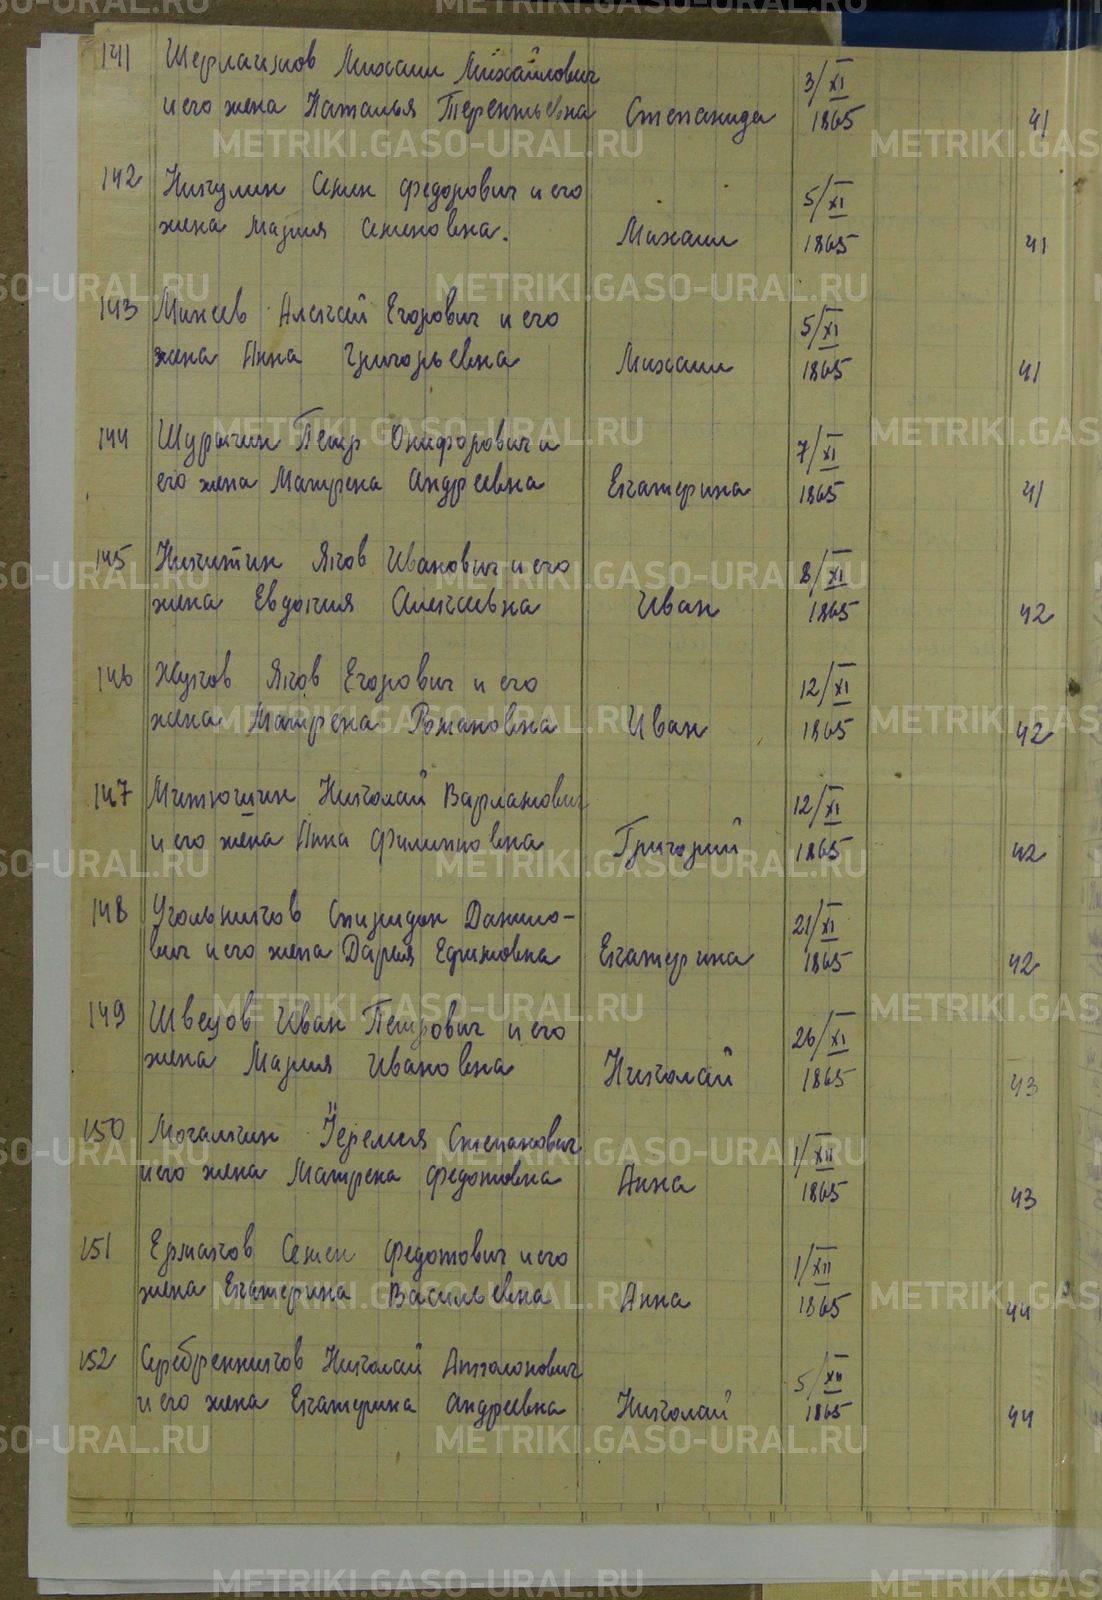 141 Шерлаимов Михаил Михайлович 3/XI
и его жена Наталья Терентьевна Степанида 1865 41
142 Никулин Семен Федорович и его 5/XI
жена Мария Семеновна. Михаил 1865 41
143 Минеев Алексей Егорович и его 5/XI
жена Анна Григорьевна Михаил 1865 41
144 Шурыгин Петр Онифорович и 7/XI
его жена Матрена Андреевна Екатерина 1865 41
145 Никитин Яков Иванович и его 8/XI
жена Евдокия Алексеевна Иван 1865 42
146 Жуков Яков Егорович и его 12/XI
жена Матрена Романовна Иван 1865 42
147 Митюшин Николай Варламович 12/XI
и его жена Анна Филипповна Григорий 1865 42
148 Угольников Спиридон Данило- 21/XI
вич и его жена Дарья Ефимовна Екатерина 1865 42
149 Швецов Иван Петрович и его 26/XI
жена Мария Ивановна Николай 1865 43
150 Могалкин Иеремия Степанович 1/XII
и его жена Матрена Федотовна Анна 1865 43
151 Ермаков Семен Федотович и его 1/XII
жена Екатерина Васильевна Анна 1865 44
152 Серебренников Николай Апполонович 5/XII
и его жена Екатерина Андреевна Николай 1865 44
METRIKI.GASO-URAL.RU